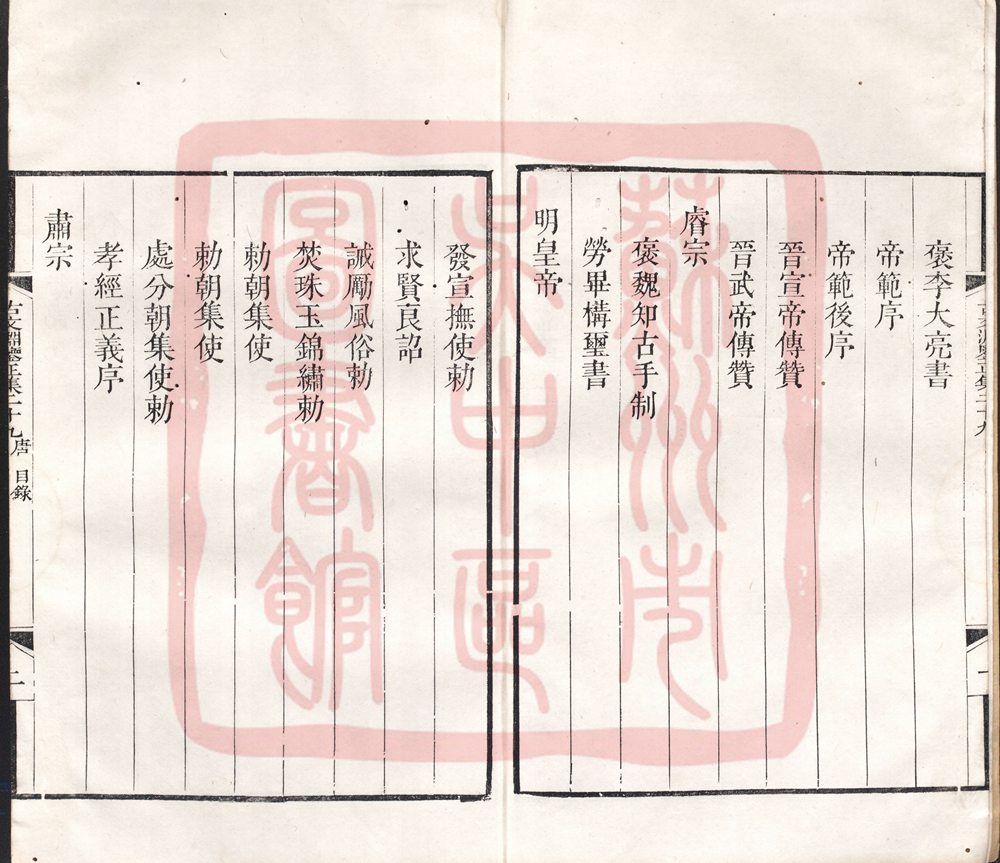 褒李大亮書
帝範序
帝範後序
晉宣帝傳贊
晉武帝傳贊
睿宗
褒魏知古手制
勞畢構璽書
明皇帝
發宣撫使勅
求賢良詔
誡勵風俗勅
焚珠玉錦繡勅
勅朝集使
勅朝集使
處分朝集使勅
孝經正義序
肅宗
古文淵鑒正集二十九 唐 目錄
二
蘇州市
吳中區
圖書館